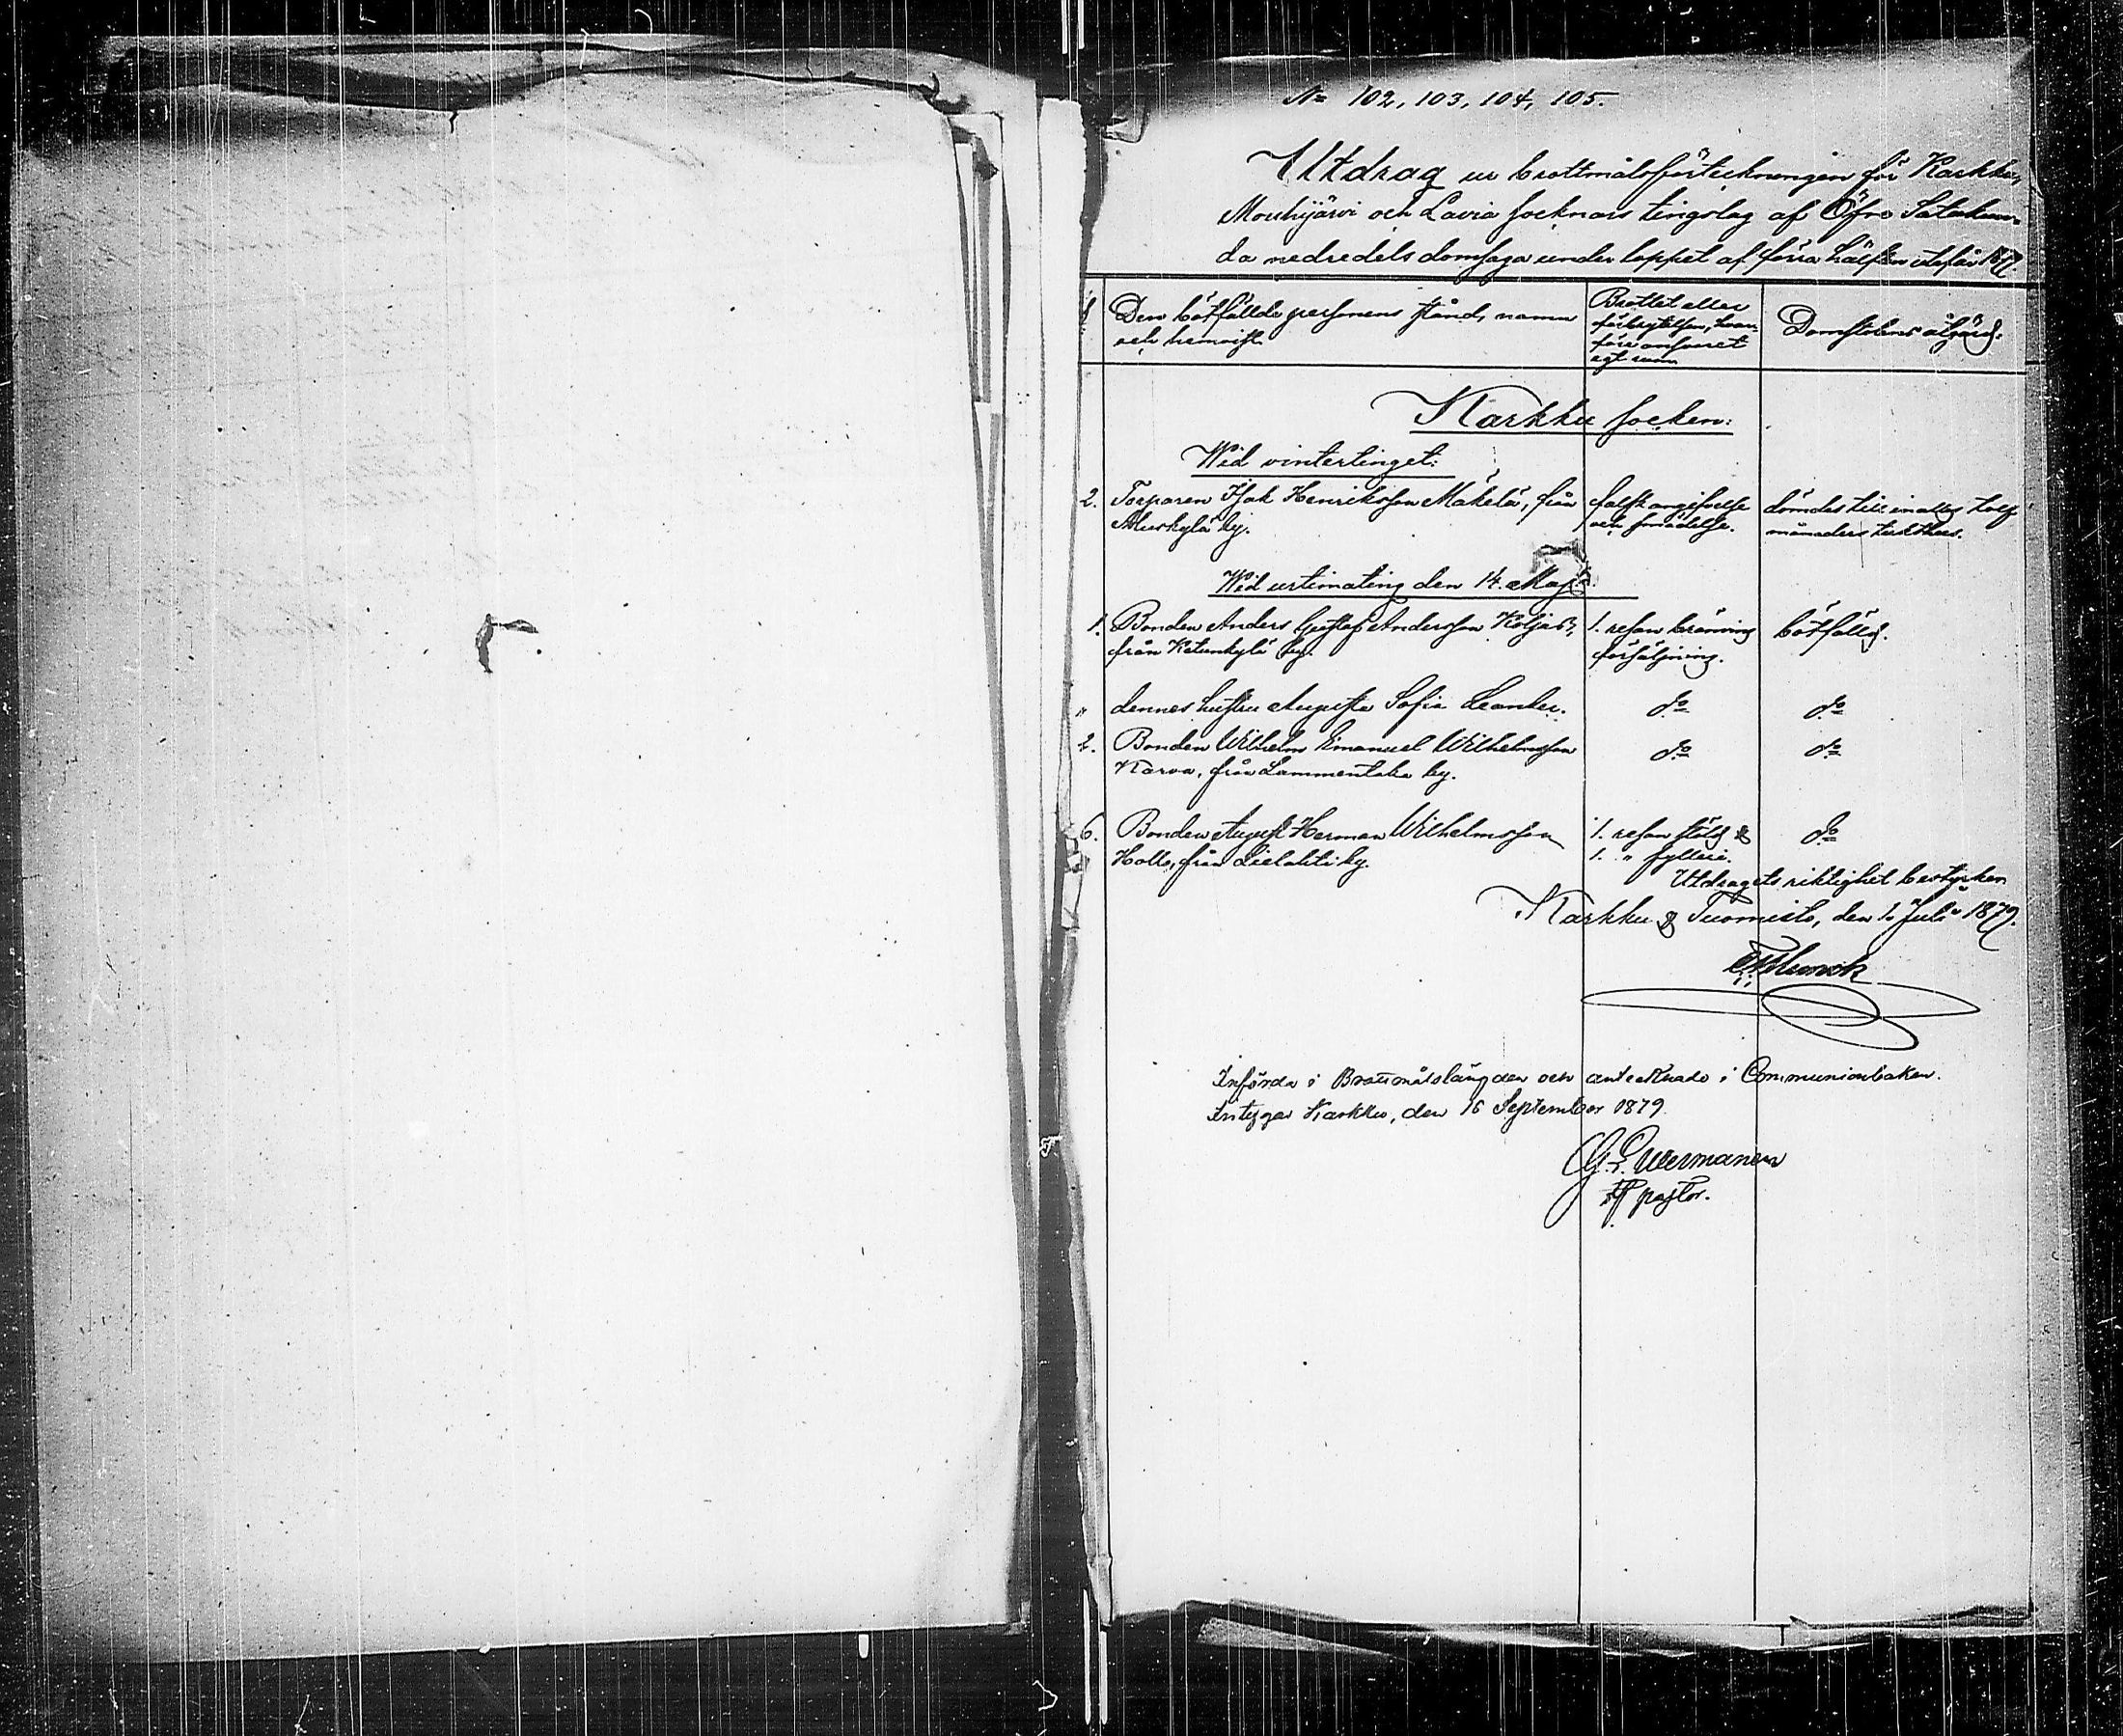 № 102, 103, 104, 105.
Utdrag ur brottmålsförteckningen för Karkku,
Mouhijärvi och Lavia socknars tingslag af Öfre Satakun-
da nedredels domsaga under loppet af förra hälften utaf år 1879.
§
Den bötfällde personens stånd, namn
och hemvist.
Brottet eller
förbrytelsen, hvar-
före ansvaret
egt rum
Domstolens åtgärd.
Karkku socken:
Wid vintertinget:
2. Torparen Isak Henriksson Mäkelä, från
by.
falsk angifvelse
och smädelse.
dömdes till inalles tolf
månaders tukthus.
Wid urtimating den 14. Maj
1. Bonden Anders Gustaf Andersson Kolja
från Kutunkylä by.
1. resan bränvins
försäljning.
bötfälld.
" dennes hustru Augusta Sofia Leander.
do
do
2. Bonden Wilhelm Emanuel Wilhelmsson
Karva, från Lammentaka by.
do
do
6. Bonden August Herman Wilhelmsson
Hollo, från Lielahti by.
1. resan stöld &
1. " fylleri.
do
Utdragets riktighet bestyrker
Karkku & Tuomisto, den 1. Juli 1879.
Införda i Brottmålslängden och antecknade i Communionboken.
Intygar Karkku, den 16 September 1879.
pastor.